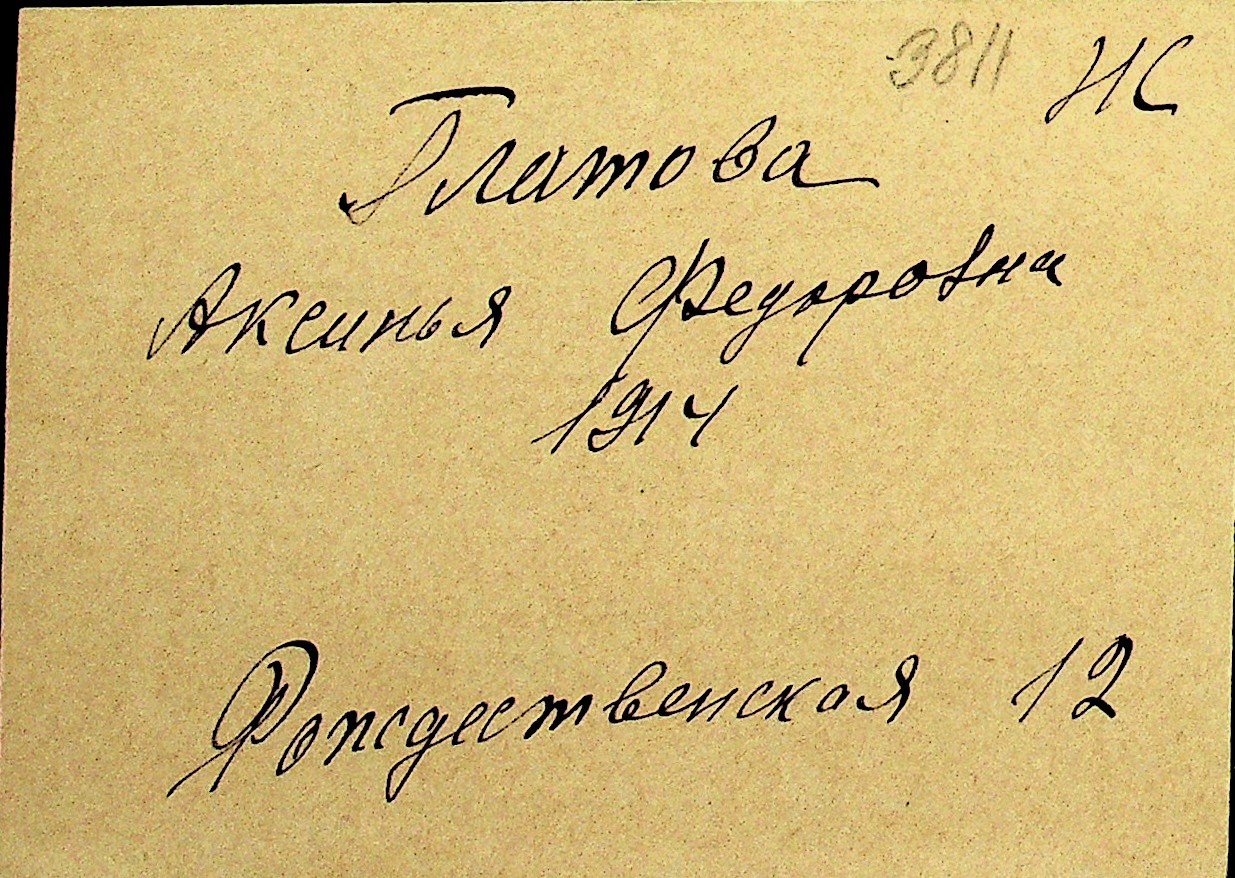 3811 НС
Платова
Аксинья Федоровна
1914
Рождественская 12